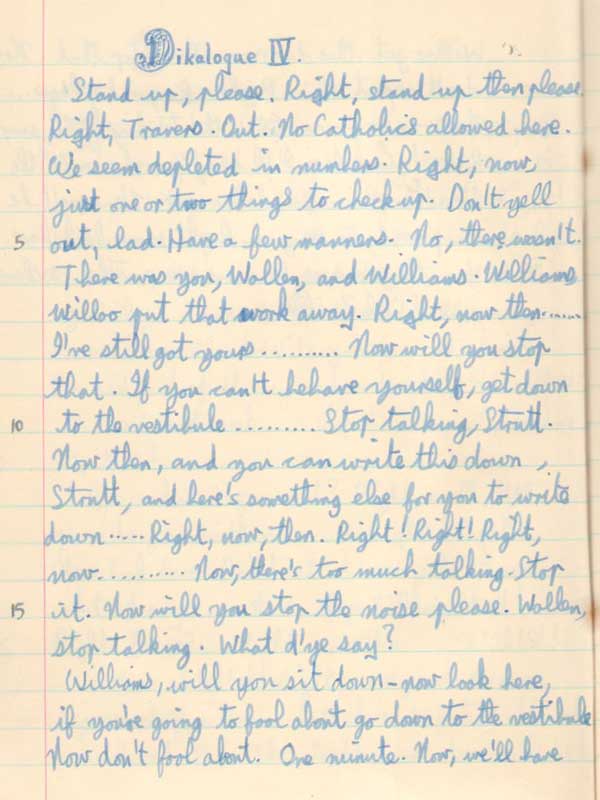 Dikalogue IV.
Stand up, please. Right, stand up then please.
Right, Travers. Out. No Catholics allowed here.
We seem depleted in numbers. Right, now,
just one or two things to check up. Don't yell
5 out, lad. Have a few manners. No, there wasn't.
There was you, Wollen, and Williams. Williams
willoo put that work away. Right, now then......
I've still got yours .......... Now will you stop
that. If you can't behave yourself, get down
10 to the vestibule ......... Stop talking, Strutt.
Now then, and you can write this down,
Strutt, and here's something else for you to write
down ..... Right, now, then. Right! Right! Right,
now.......... Now, there's too much talking. Stop
15 it. Now will you stop the noise please. Wollen,
stop talking. What d'ye say?
Williams, will you sit down - now look here,
if you're going to fool about go down to the vestibule
Now don't fool about. One minute. Now, we'll have